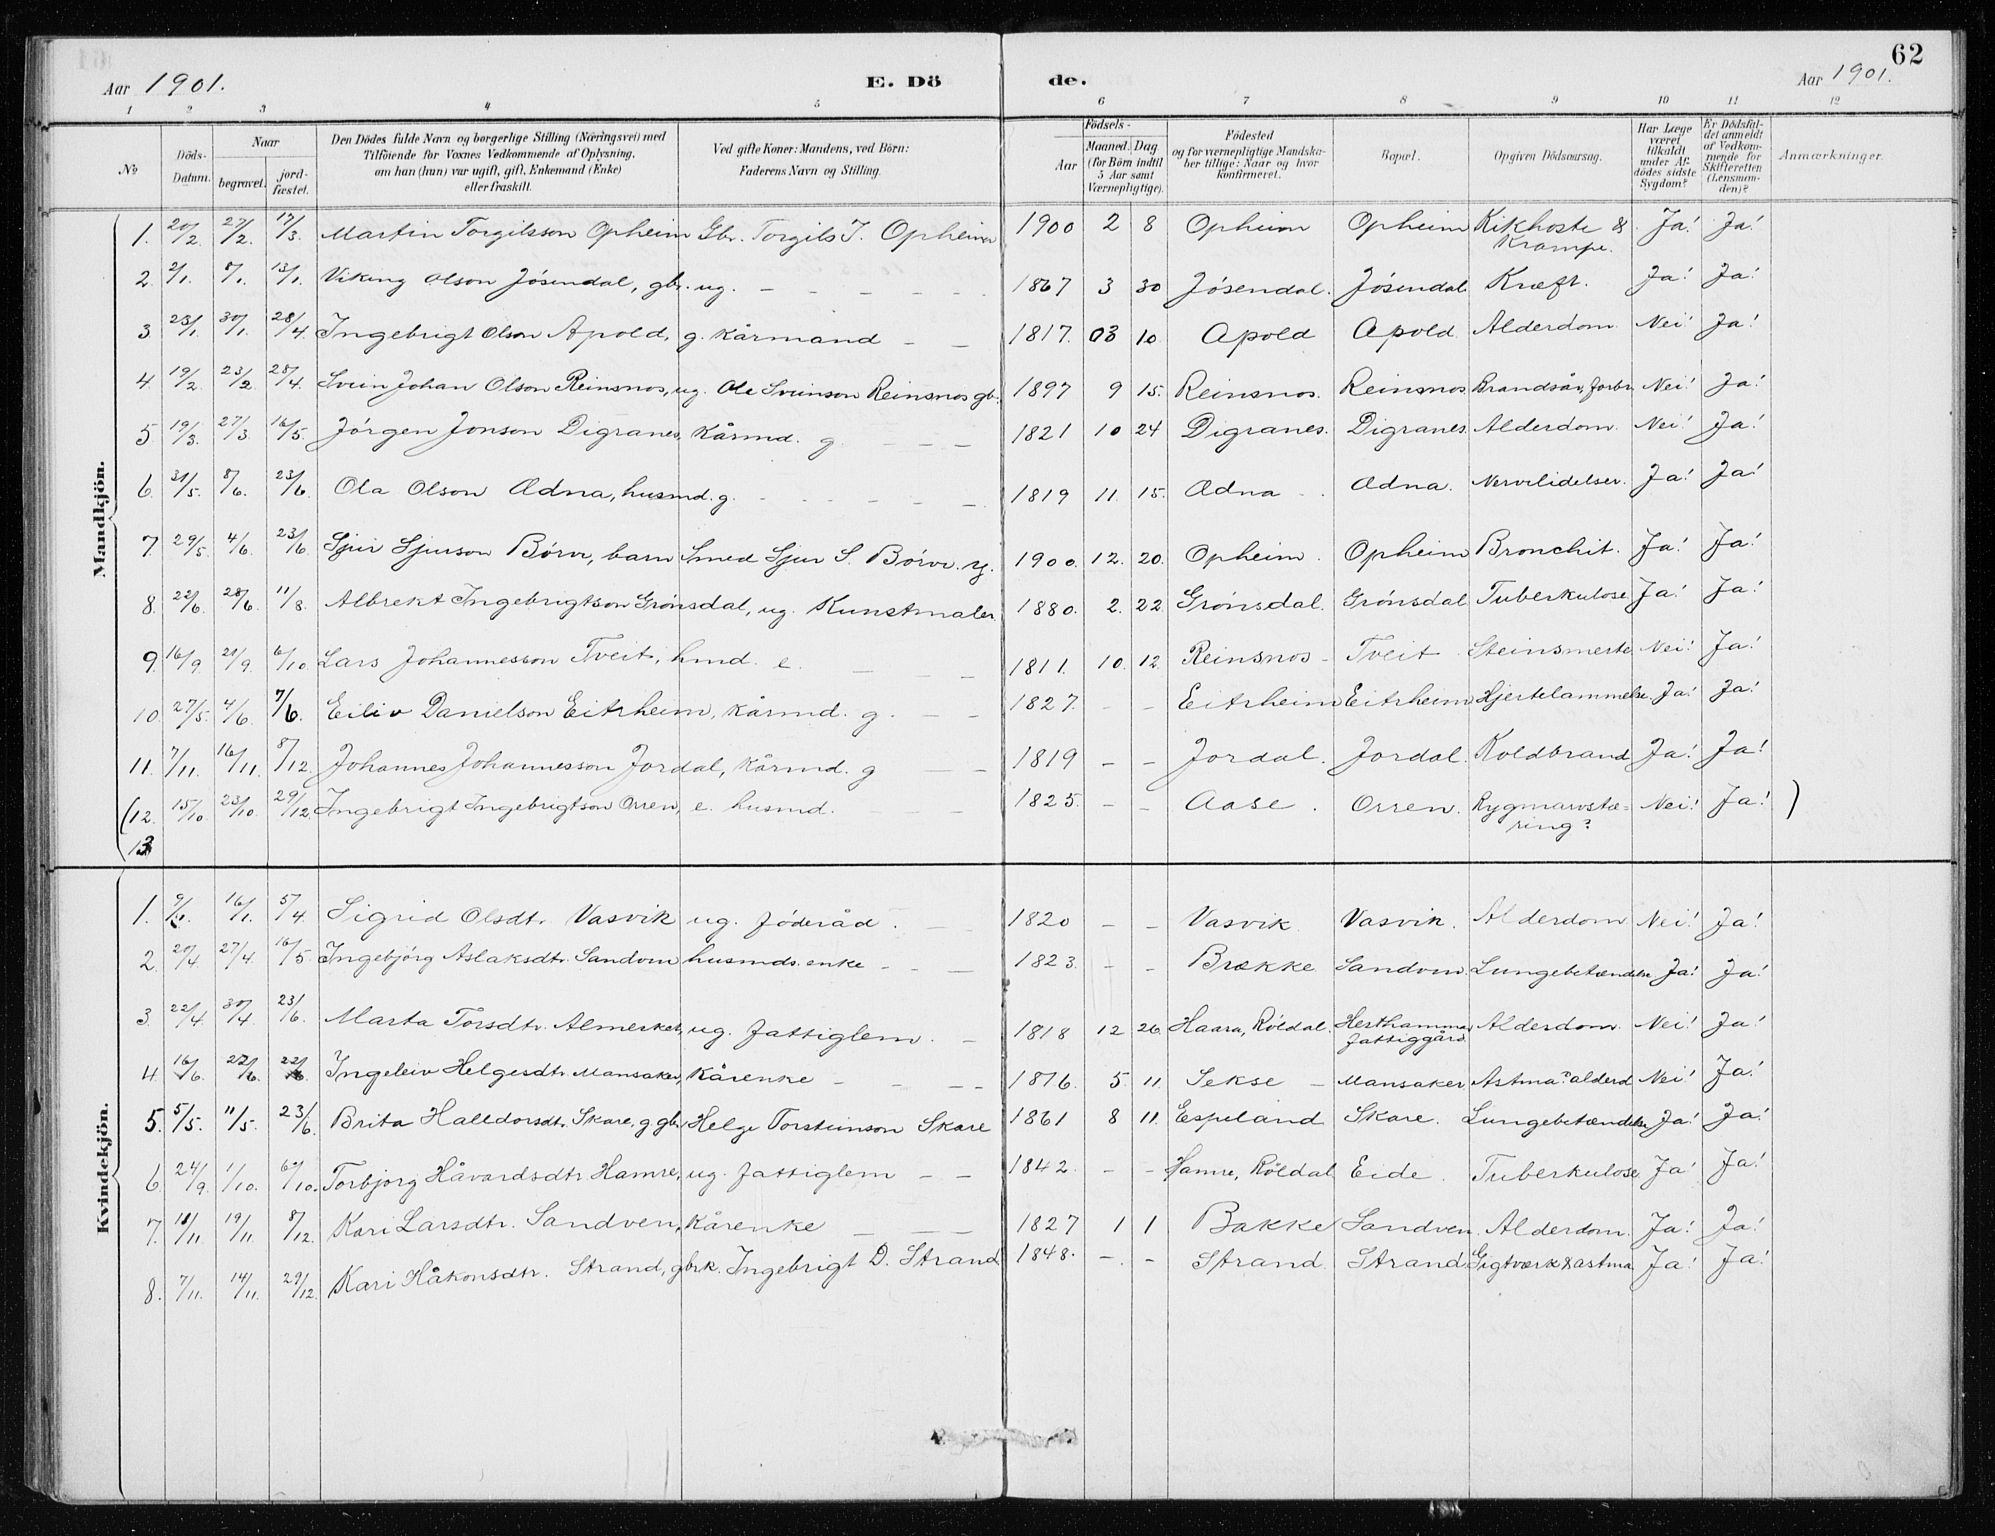 62
Aar 1901.
E. Dö
de.
Aar 1901.
1 2 3 4 5 6 7 8 9 10 11 12
№
Döds-Datum.
Naar
begravet.
jord-fæstet.
Den Dödes fulde Navn og borgerlige Stilling (Næringsvei) med
Tilföiende for Voxnes Vedkommende af Oplysning,
om han (hun) var ugift, gift, Enkemand (Enke)
eller fraskilt.
Ved gifte Koner: Mandens, ved Börn:
Faderens Navn og Stilling.
Födsels-
Aar
Maaned. Dag
(for Börn indtil
5 Aar samt
Værnepligtige).
Födested
og for værnepligtige Mandska-
ber tillige: Naar og hvor
konfirmeret.
Bopæl.
Opgiven Dödsaarsag.
Har Læge
været
tilkaldt
under Af-
dödes sidste
Sygdom?
Er Dödsfal-
det anmeldt
af Vedkom-
mende for
Skifteretten
(Lensman-
den)?
Anmærkninger.
Mandkjön.
1. 20/2. 27/2. 17/3. Martin Torgilsson Opheim Gbr. Torgils T. Opheim 1900 2 8 Opheim Opheim Kikhoste & Ja! Ja!
Krampe.
2. 2/1. 8/1. 13/1. Viking Olson Jósendal, gbr. ug. — — — — — 1867 3 30 Jósendal. Jósendal. Kræft. Ja! Ja!
3. 23/1. 30/1. 28/4. Ingebrigt Olson Apold, g. kårmand — — 1817. 03 10 Apold Apold. Alderdom. Nei! Ja!
4. 19/2. 23/2. 28/4. Svein Johan Olson Reinsnos, ug. Ole Sveinson Reinsnos gb. 1897 9 15. Reinsnos. Reinsnos. Brandsår, forbr. Nei! Ja!
5. 19/3. 27/3. 16/5. Jórgen Jonson Digranes, kårmd. g — — — 1821 10 24 Digranes. Digranes. Alderdom. Nei! Ja!
6. 31/5. 8/6. 23/6. Ola Olson Ædna, husmd. g. — — — — — 1819 11. 15. Ædna — . Ædna. Nervelidelser. Ja! Ja!
7. 29/5. 4/6. 23/6. Sjur Sjurson Bórve, barn Smed Sjur S. Bórve. 1900. 12. 20. Opheim. Opheim Bronchit. Ja! Ja!
8. 22/6. 28/6. 11/8. Albrekt Ingebrigtson Grónsdal, ug. Kunstmaler. 1880. 2. 22 Grónsdal. Grónsdal. Tuberkulose Ja! Ja!
9. 16/9. 21/9. 6/10 Lars Johannesson Tveit, hmd. e. — — 1811. 10. 12. Reinsnos — Tveit. Steinsmerte Nei! Ja!
10. 27/5. 4/6. 7/6. Eiliv Danielson Eitrheim, kårmd. g. — — 1827. — — Eitrheim Eitrheim Hjertelammelse Ja! Ja!
11. 7/11. 16/11. 8/12. Johannes Johannesson Jordal, kårmd. g — — 1819 — — Jordal. Jordal. Koldbrand Ja! Ja!
(12. 15/10. 23/10. 29/12. Ingebrigt Ingebrigtson Orren, e. husmd. — — — 1825. — — Aase. Orren. Rygmarvstæ= Nei! Ja! )
ring?
13
Kvindekjön.
1. 16/1. 5/4. Sigrid Olsdt. Vasvik ug. fóderåd. — — 1820 — — Vasvik. Vasvik. Alderdom Nei! Ja!
2. 20/4. 27/4. 16/5. Ingebjórg Aslaksdt. Sandven husmds. enke — — — 1823. — — Brække Sandven. Lungebetændelse Ja! Ja!
3. 22/4. 30/4. 23/6. Marta Torsdtr. Almerket, ug. fattiglem. — 1818 12 26. Haara, Róldal. Hesthammar Alderdom. Nei! Ja!
fattiggård
4. 16/6. 22/6. 22/6. Ingeleiv Helgesdtr Mansaker, kårenke — — — — 1816. 5. 11. Sekse — Mansaker Astma? alderd. Nei! Ja!
5. 5/5. 11/5. 23/6. Brita Halldorsdtr. Skare, g gb. Helge Torsteinson Skare 1861 8 11. Espeland Skare. Lungebetændelse Ja! Ja!
6. 24/9. 1/10. 6/10. Torbjórg Håvardsdtr. Hamre, ug. fattiglem — — 1842. — — Hamre, Róldal Eide. Tuberkulose Ja! Ja!
7. 18/11. 19/11. 8/12. Kari Larsdtr. Sandven, kårenke — — — 1827 1 1 Bakke Sandven Alderdom. Ja! Ja!
8. 7/11. 14/11. 29/12. Kari Håkonsdtr. Strand, gbrk. Ingebrigt D. Strand 1848. — — Strand. Strand. Gigtværk & astma Ja! Ja!